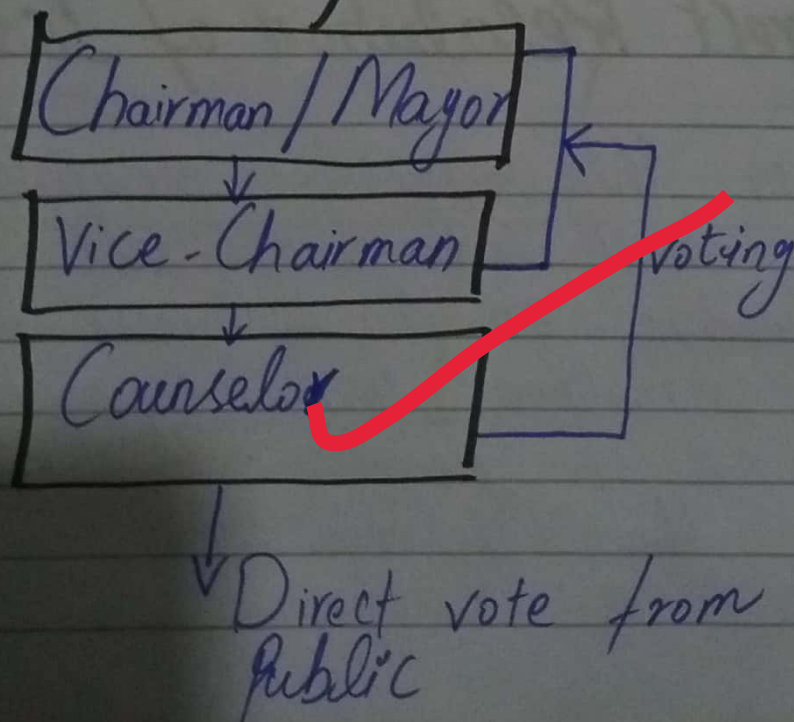 Chairman / Mayor
Vice - Chairman
voting
Counselor
Direct vote from
Public